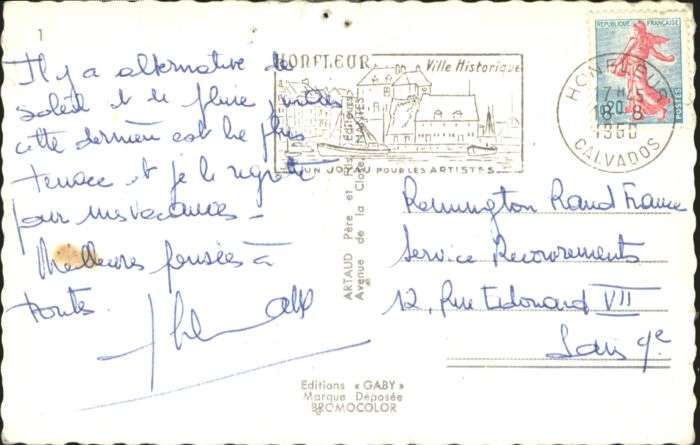 Il y a alternative de
soleil et de pluie, mais
cette dernière est la plus
tenace et je le regrette
pour mes vacances -
Meilleures pensées à
toutes.
HONFLEUR Ville Historique
UN JOYAU POUR LES ARTISTES
REPUBLIQUE FRANÇAISE
POSTES
HONFLEUR
7H 45
8 - 8
1960
CALVADOS
ARTAUD Père et Fils, Editeurs
Avenue de la Close, NANTES
Remington Rand France
Service Recouvrements
12, Rue Edouard VII
Paris 9e
Editions « GABY »
Marque Déposée
BROMOCOLOR